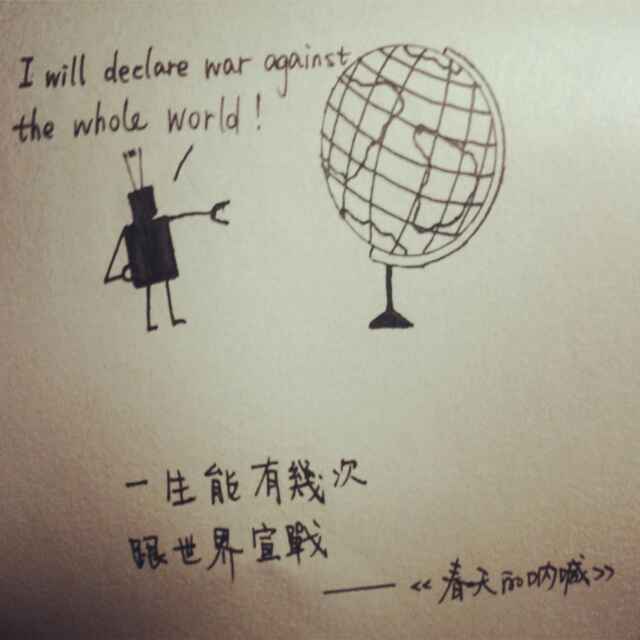 I will declare war against
the whole world!
一生能有幾次
跟世界宣戰
——《春天的吶喊》